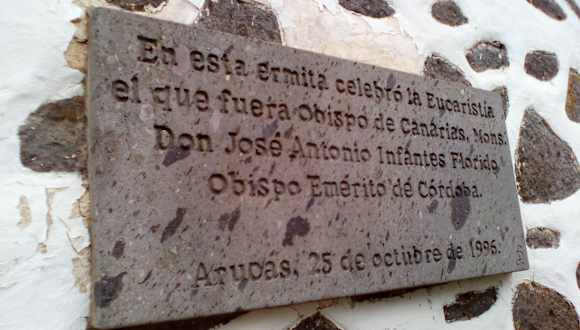 En esta ermita celebró la Eucaristía
el que fuera Obispo de Canarias, Mons.
Don José Antonio Infantes Florido
Obispo Emérito de Córdoba.
Arucas, 25 de octubre de 1996.